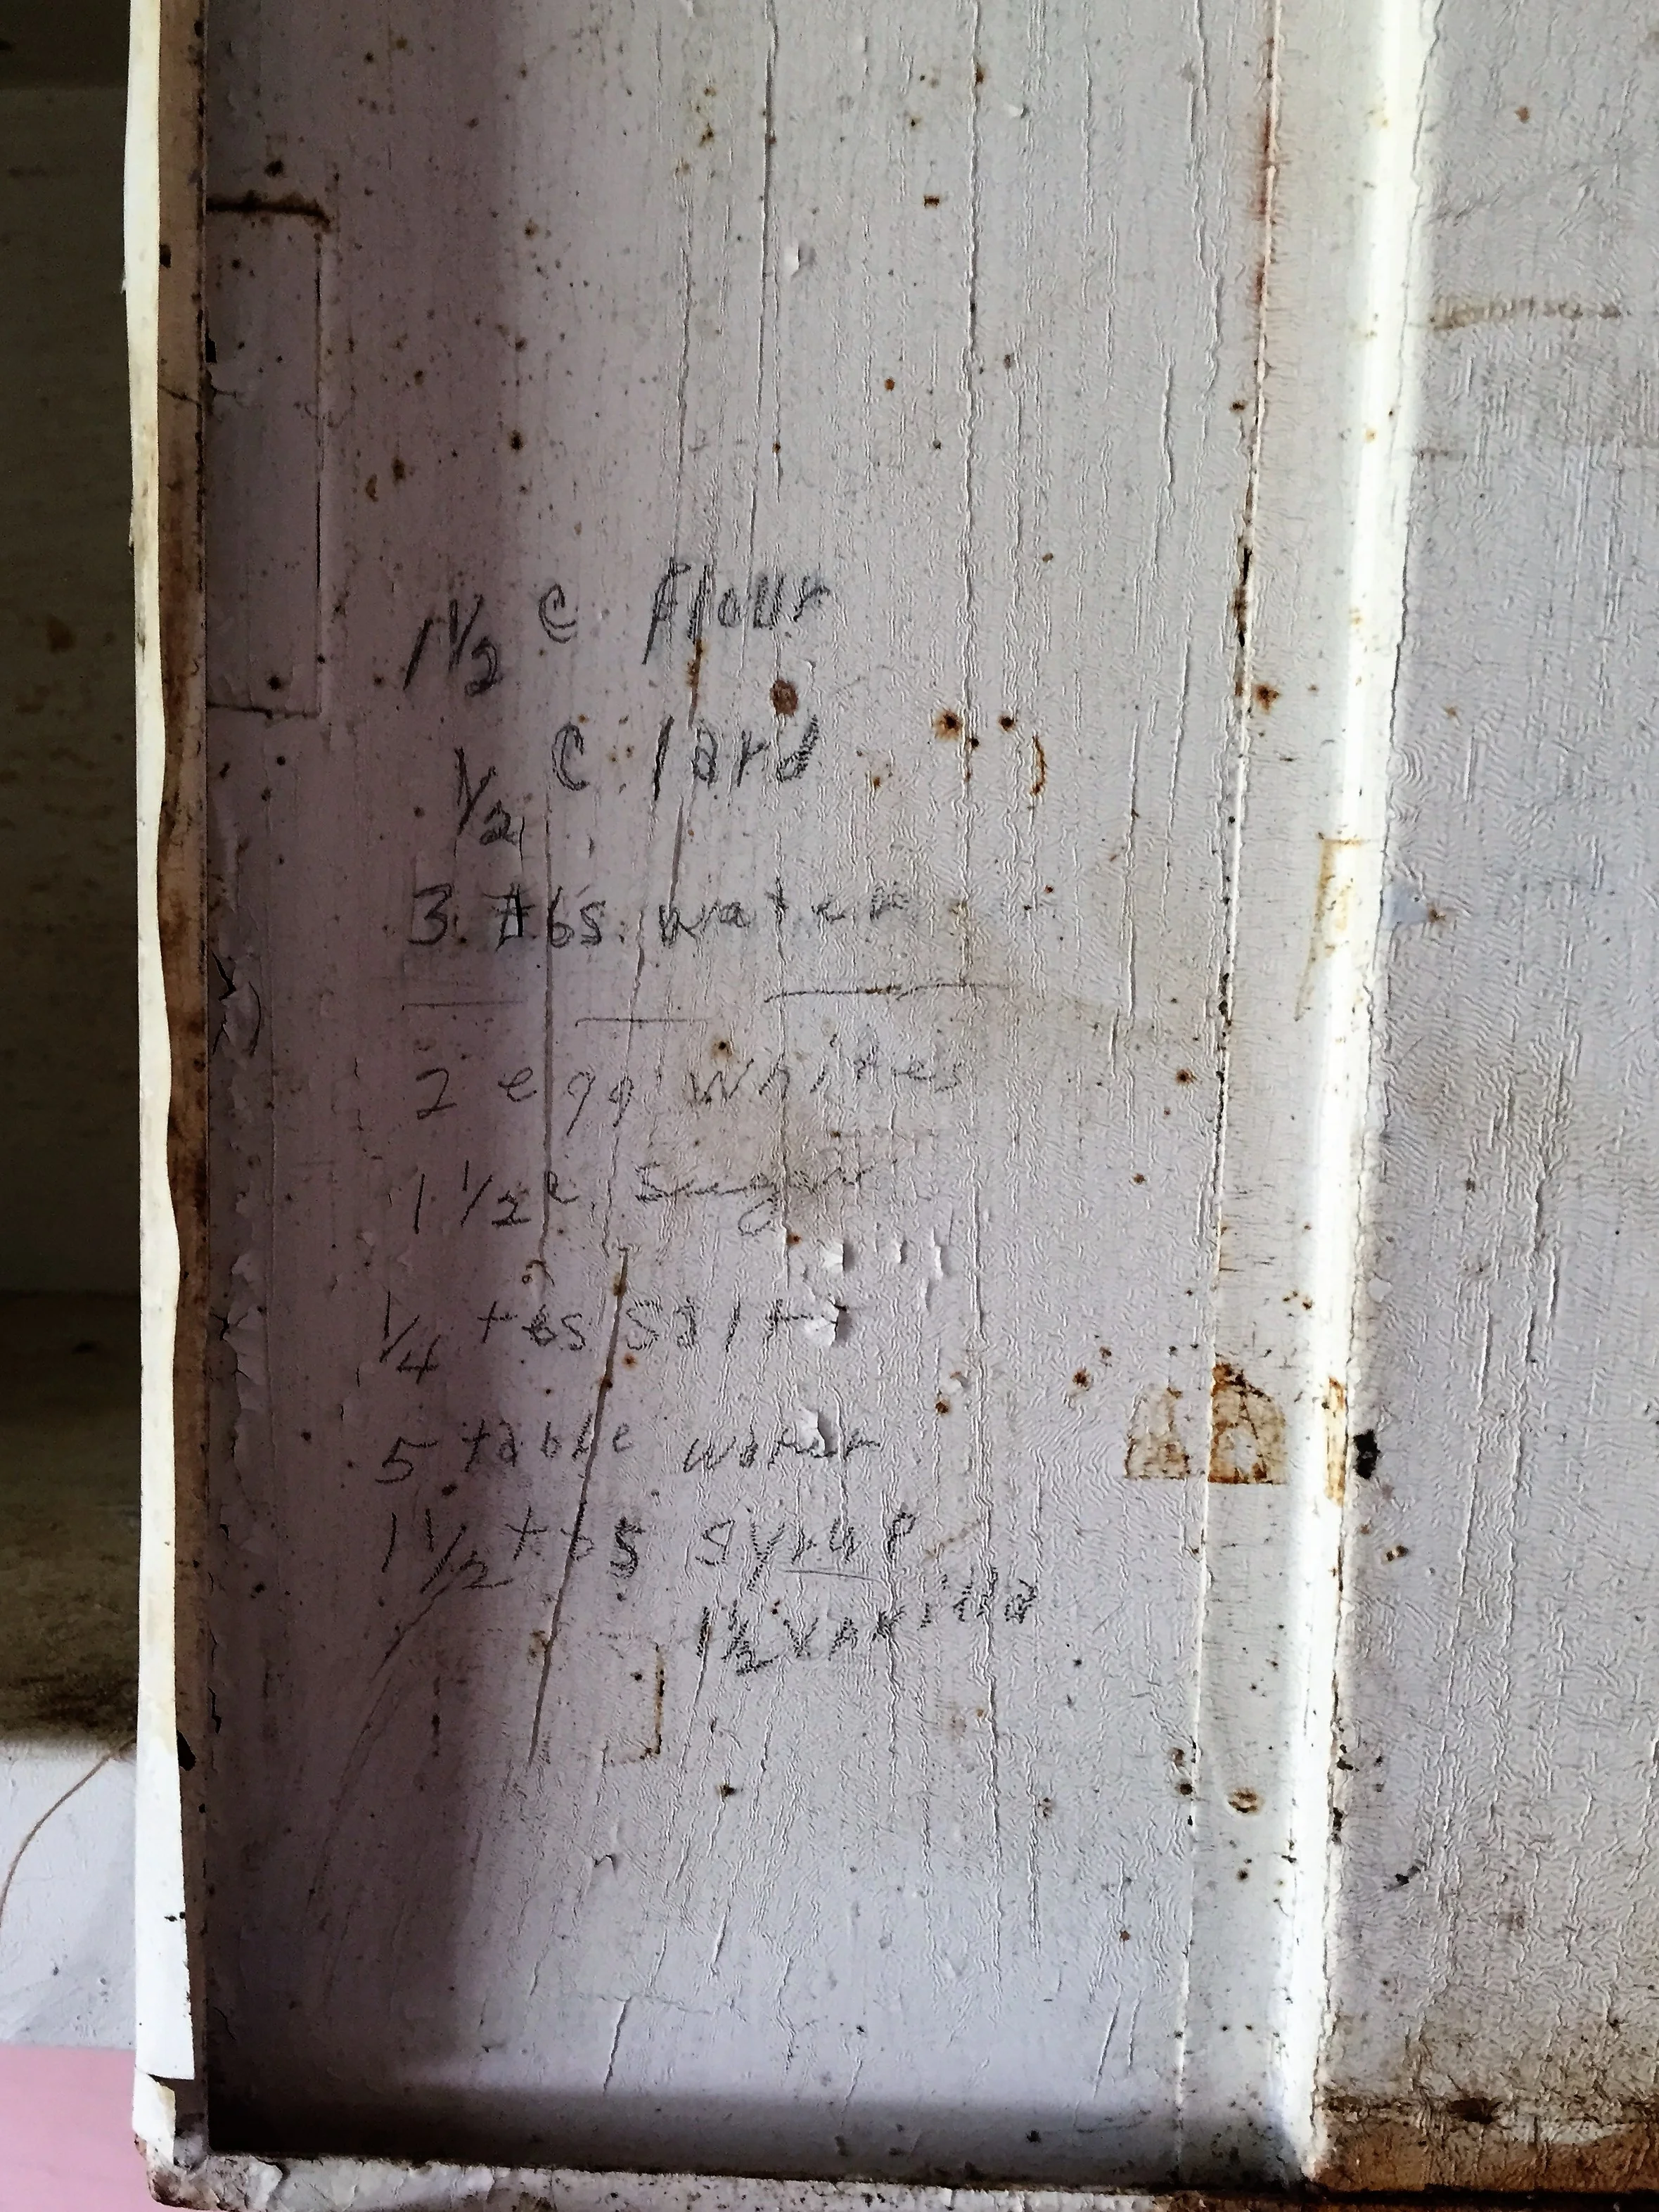 1 1/2 c Flour
1/2 c lard
3 tbs water
2 egg whites
1 1/2 c sugar
1/4 tbs salt
5 table water
1 1/2 tbs syrup
1 1/2 vanilla